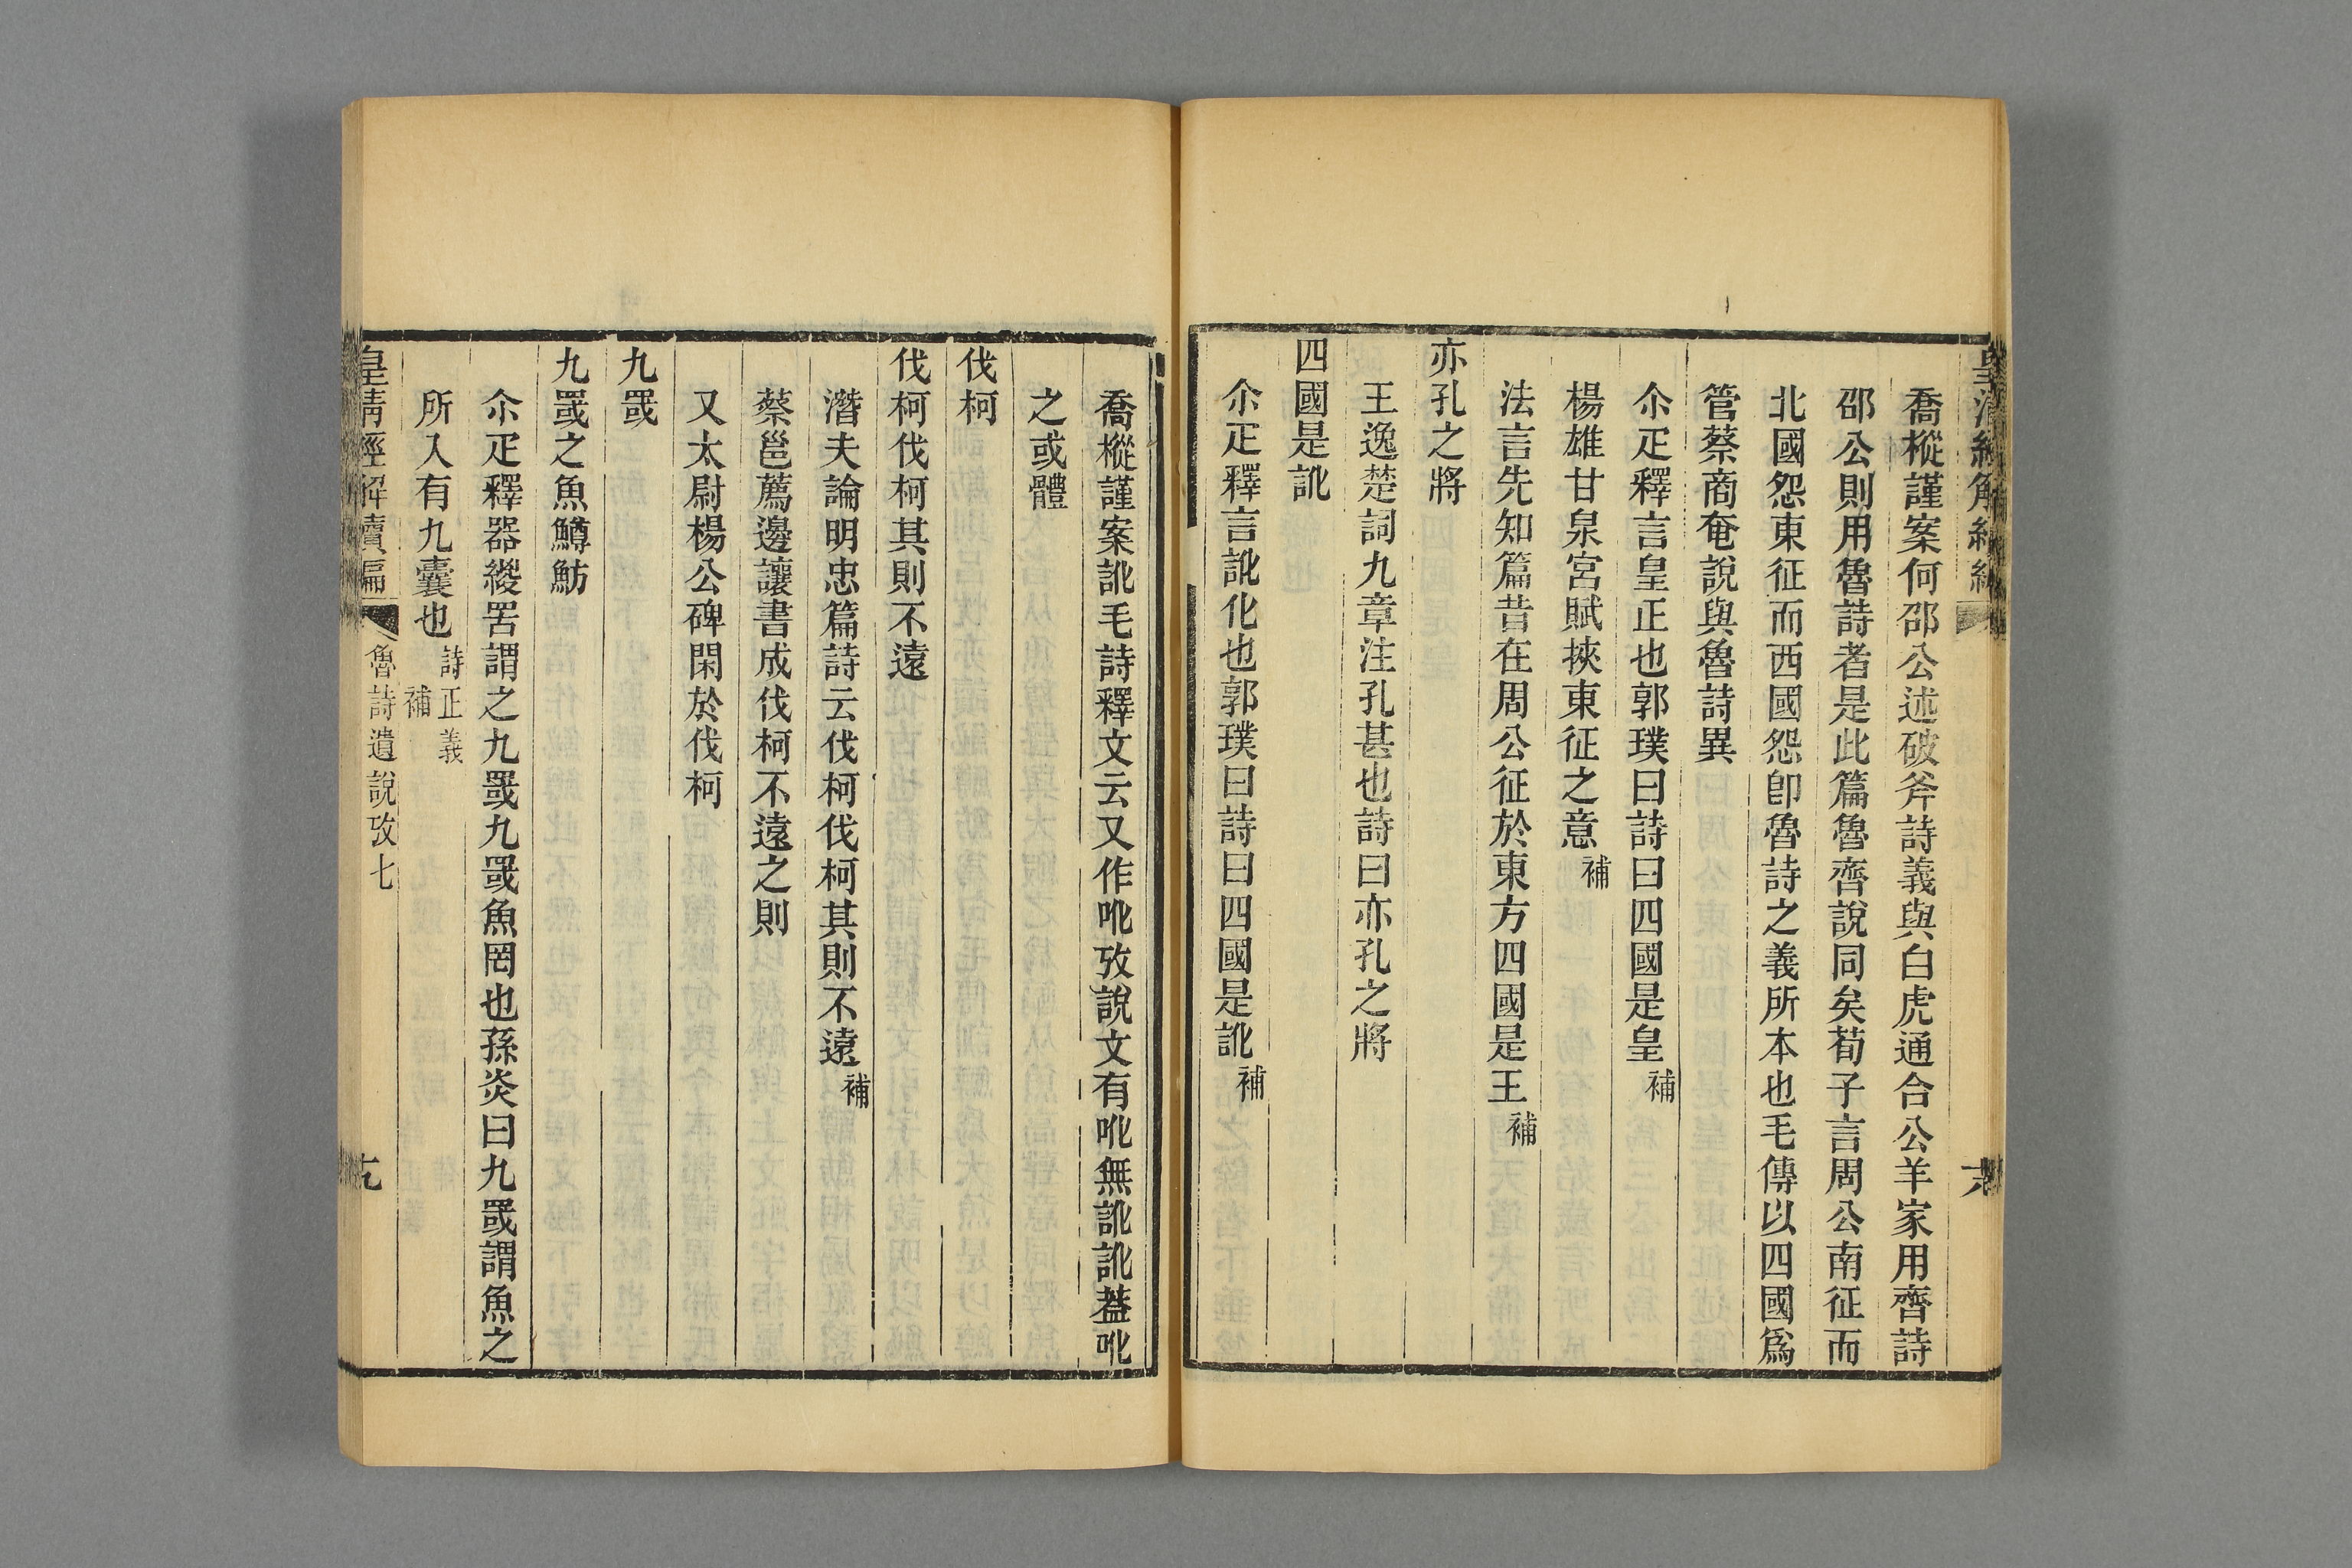 喬樅謹案何邵公述破斧詩義與白虎通合公羊家用齊詩
邵公則用魯詩者是此篇魯齊說同矣荀子言周公南征而
北國怨東征而西國怨卽魯詩之義所本也毛傳以四國爲
管蔡商奄說與魯詩異
尒疋釋言皇正也郭璞曰詩曰四國是皇補
楊雄甘泉宮賦挾東征之意補
法言先知篇昔在周公征於東方四國是王補
亦孔之將
王逸楚詞九章注孔甚也詩曰亦孔之將
四國是訛
尒疋釋言訛化也郭璞曰詩曰四國是訛補
喬樅謹案訛毛詩釋文云又作吪攷說文有吪無訛訛葢吪
之或體
伐柯
伐柯伐柯其則不遠
潛夫論明忠篇詩云伐柯伐柯其則不遠補
蔡邕薦邊讓書成伐柯不遠之則
又太尉楊公碑閑於伐柯
九罭
九罭之魚鱒魴
尒疋釋器緵罟謂之九罭九罭魚罔也孫炎曰九罭謂魚之
所入有九囊也詩正義補
皇清經解續編
魯詩遺說攷七